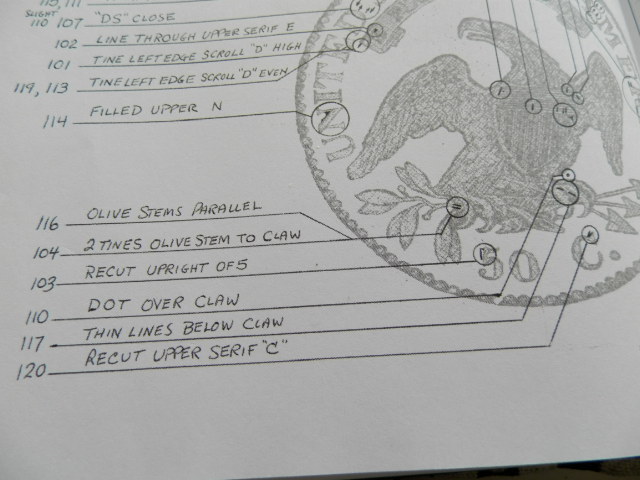 SLIGHT
110 107 "DS" CLOSE
102 LINE THROUGH UPPER SERIF E
101 TINE LEFT EDGE SCROLL "D" HIGH
119, 113 TINE LEFT EDGE SCROLL "D" EVEN
114 FILLED UPPER N
UNI
116 OLIVE STEMS PARALLEL
104 2 TINES OLIVE STEM TO CLAW
103 RECUT UPRIGHT OF 5
110 DOT OVER CLAW
117 THIN LINES BELOW CLAW
120 RECUT UPPER SERIF "C"
50 C.